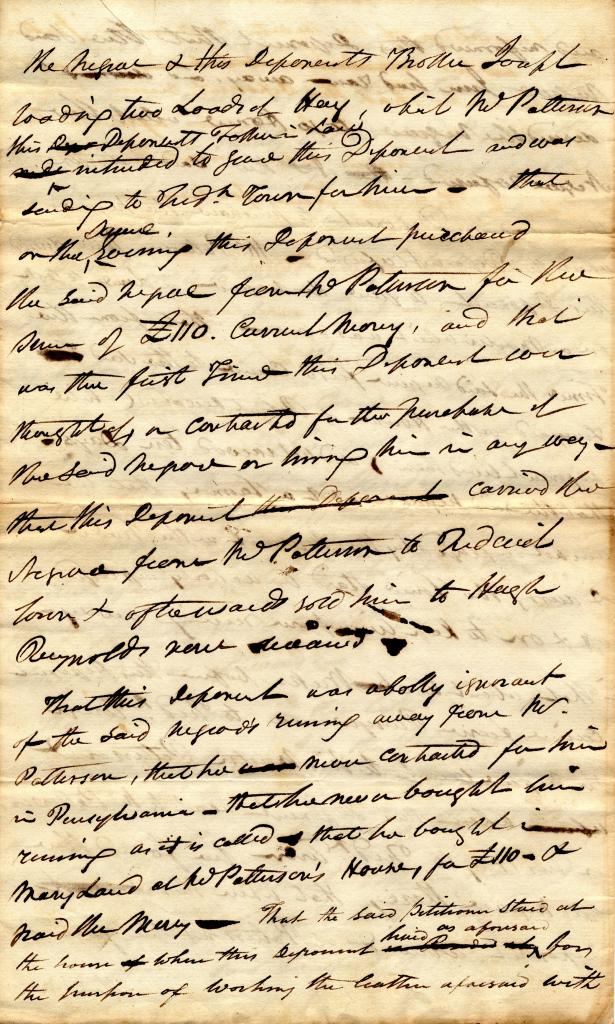 the Negroe & this Deponents Brother Joseph
loading two Loads of Hay, whilst Mr Patterson
this Deponents Father in Law
intended to send this Deponent and was
sending to Fredk Town for him – that
on the same Evening this Deponent purchased
the said Negroe from Mr Patterson for the
sum of £110. Current Money, and that
was the first Time this Deponent ever
thought of, or contracted for the purchase of
the said Negroe or hiring him in any way –
that this Deponent the Deponent carried the
Negroe from Mr Patterson to Frederick
Town & afterwards sold him to Hugh
Reynolds now deceased
That this Deponent was wholly ignorant
of the said Negroe's running away from Mr
Patterson, that he was never contracted for him
in Pensylvania – that he never bought him
running as it is called & that he bought in
Maryland at Mr Patterson's House, for £110 – &
paid the Money – That the said Petitioner staid at
as aforesaid
the house of where this Deponent lived by for
the purpose of working the leather aforesaid with